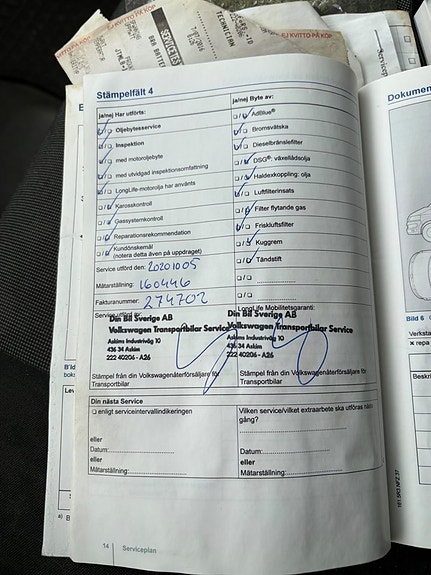 EJ KVITTO PÅ KÖP
SERVICETES
TECHNICIAN
EJ KVITTO PÅ KÖP
Serviceplan
Stämpelfält 4
ja/nej Har utförts:
Oljebytesservice
Inspektion
med motoroljebyte
med utvidgad inspektionsomfattning
LongLife-motorolja har använts
Karosskontroll
Gassystemkontroll
Reparationsrekommendation
Kundönskemål
(notera detta även på uppdraget)
Service utförd den: 20201005
Mätarställning: 160446
Fakturanummer: 274702
Service utförd av:
Din Bil Sverige AB
Volkswagen Transportbilar Service
Askims Industriväg 10
436 34 Askim
222 40206 - A26
Stämpel från din Volkswagenåterförsäljare för
Transportbilar
ja/nej Byte av:
AdBlue®
Bromsvätska
Dieselbränslefilter
DSG®: växellådsolja
Haldexkoppling: olja
Luftfilterinsats
Filter flytande gas
Friskluftsfilter
Kuggrem
Tändstift
LongLife Mobilitetsgaranti:
Din Bil Sverige AB
Volkswagen Transportbilar Service
Askims Industriväg 10
436 34 Askim
222 40206 - A26
Stämpel från din Volkswagenåterförsäljare för
Transportbilar
Din nästa Service
enligt serviceintervallindikeringen
eller
Datum:
eller
Mätarställning:
Vilken service/vilket extraarbete ska utföras nästa
gång?
Datum:
eller
Mätarställning:
14 Serviceplan
Dokumen
Bild 6
Verksta
× repa
Beskri
181.5R3.NFZ.37